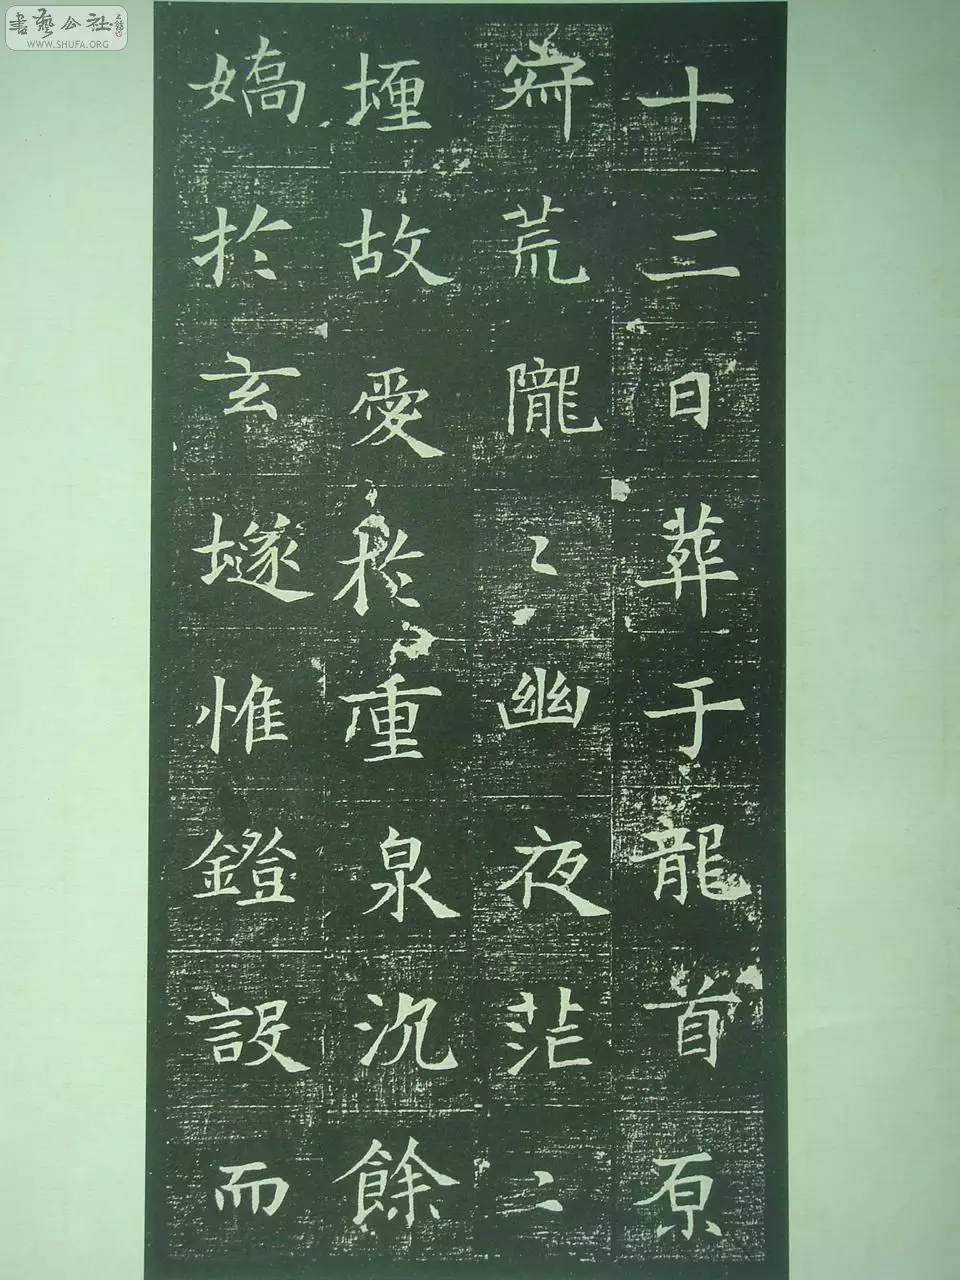 十二日葬于龍首原
荒隴〻幽夜茫〻
埋故愛於重泉沉餘
嬌於玄燧惟鐙設而
書藝公社
WWW.SHUFA.ORG